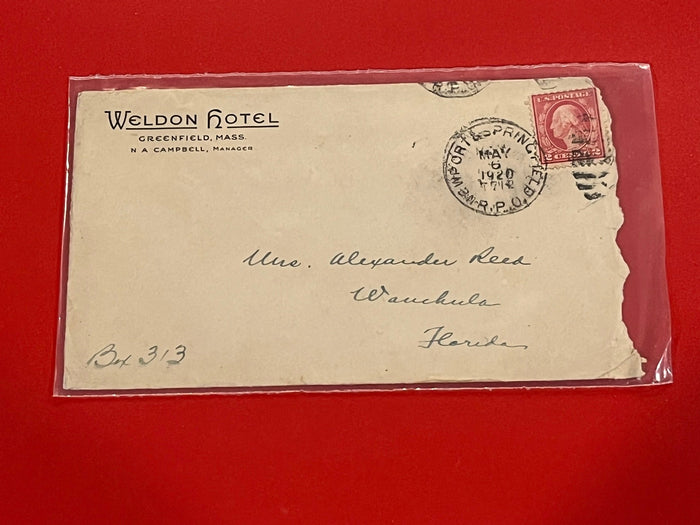 WELDON HOTEL
GREENFIELD, MASS.
N A CAMPBELL, MANAGER
R.P.O.
U.S. POSTAGE
2 CENTS 2
NEWPORT & SPRINGFIELD, R.P.O.
MAY
6
1920
Mrs. Alexander Reed
Wauchula
Florida
Box 313